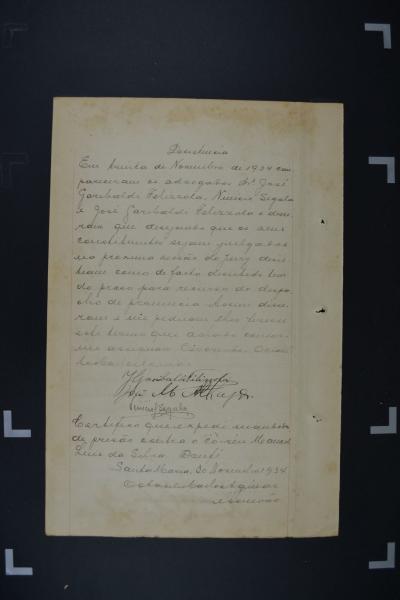 Desistencia
Em trinta de Novembro de 1934 com
pareceram os advogados Dr. José
Garibaldi Filizzola, Nimio Segala
e José Garibaldi Filizzola e disse
ram que desejando que os seus
constituintes sejam julgados
na proxima sessão do jury desis
tiam como de facto desistido tem
do prazo para recurso do despa
cho de pronuncia. Assim disse
ram e me pediram
este termo que
assignam. Escrivão
J Garibaldi Filizzola
José M.
Segala
Certifico que expedi mandado
de prisão contra o co-réo Manoel
Luis da Silva. Dou fé
Santa Maria, 30 Novembro 1934
escrivão